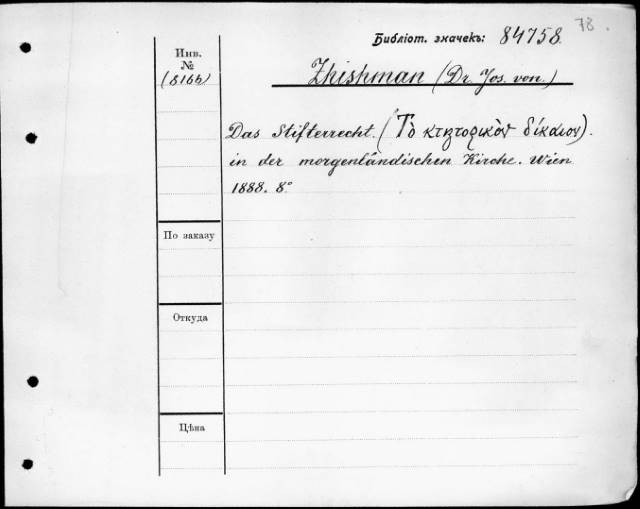 78.
Библіот. значекъ: 84758.
Инв.
№
(8166)
Zhishman (Dr. Jos. von.)
Das Stifterrecht. (Τὸ κτητορικὸν δίκαιον).
in der morgenländischen Kirche. Wien
1888. 8°
По заказу
Откуда
Цѣна